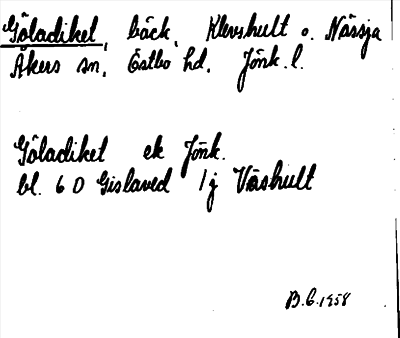 Göladiket, bäck, Klevshult o. Nässja
Åkers sn, Östbo hd. Jönk. l.
Göladiket ek Jönk.
bl. 6 D Gislaved 1j Våshult
B.C. 1958